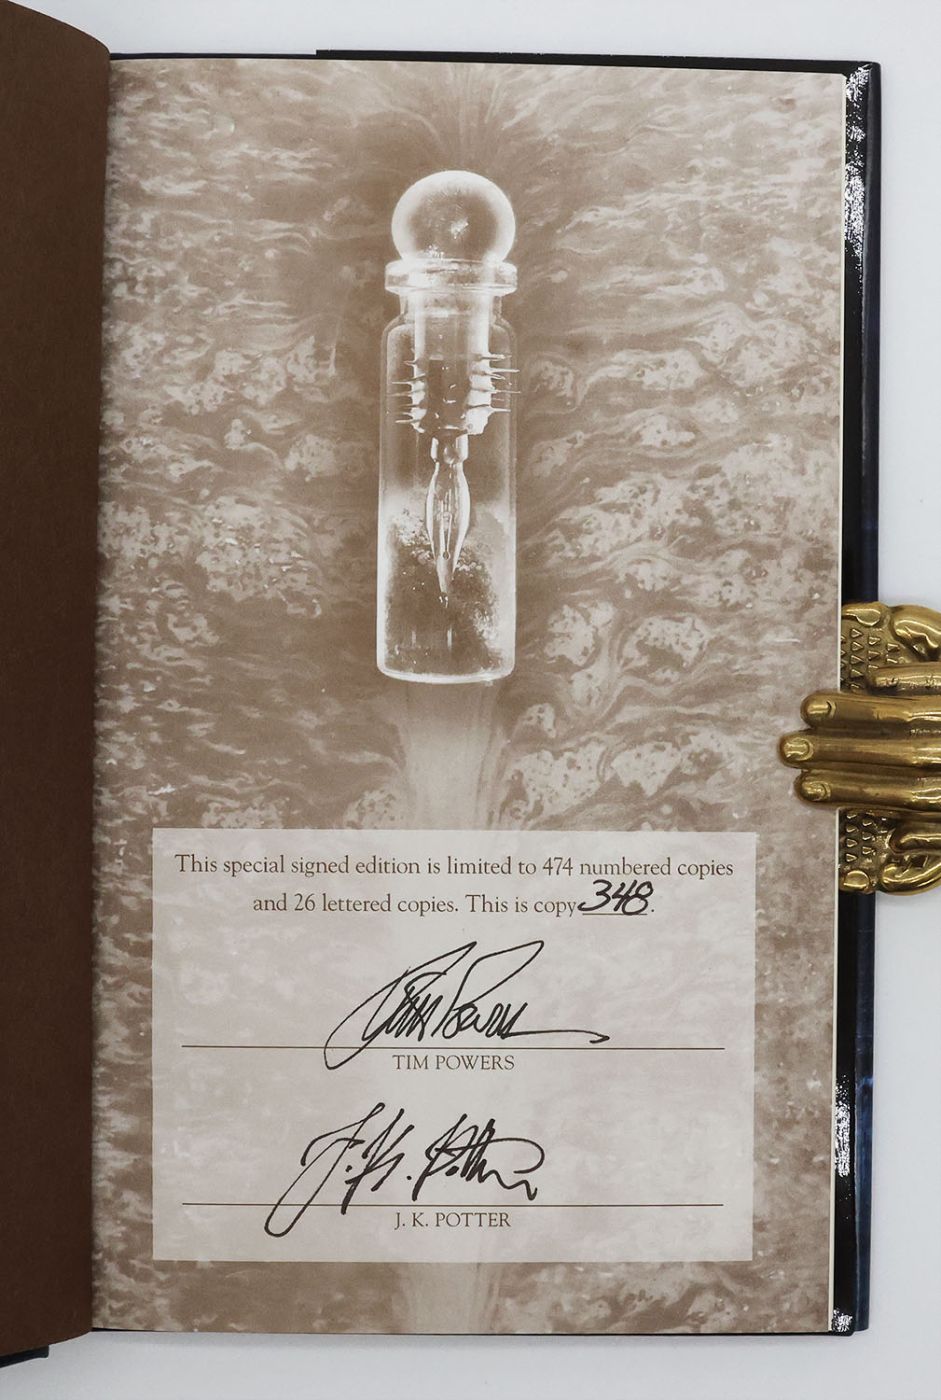 This special signed edition is limited to 474 numbered copies
and 26 lettered copies. This is copy 348.
Tim Powers
TIM POWERS
J. K. Potter
J. K. POTTER